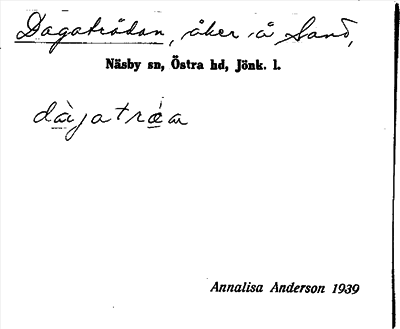 Dagaträdan, åker å Sand,
Näsby sn, Östra hd, Jönk. l.
dàjatræ̀a
Annalisa Anderson 1939